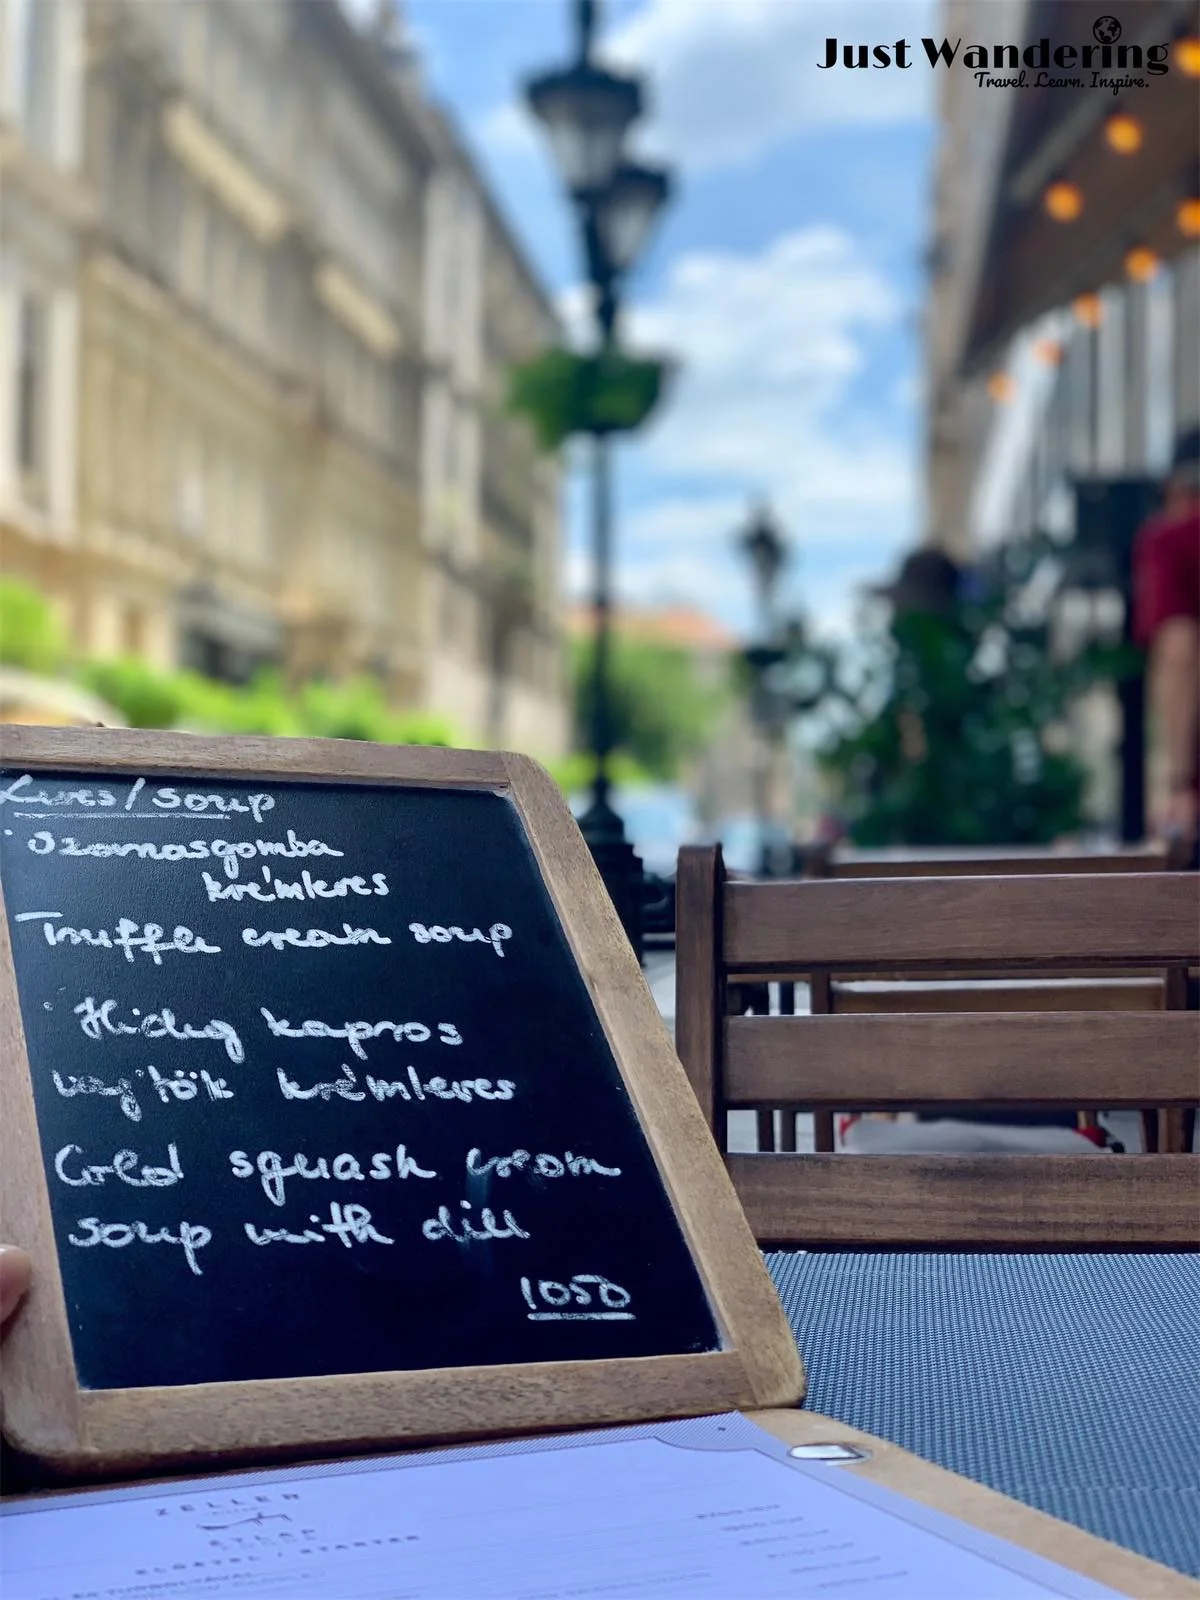 Just Wandering
Travel. Learn. Inspire.
Leves/Soup
Szarvasgomba
krémleves
Truffle cream soup
Hideg kapros
krémleves
Cold squash cream
soup with dill
1050
ZELLER
ÉTLAP
ELŐÉTEL / STARTER